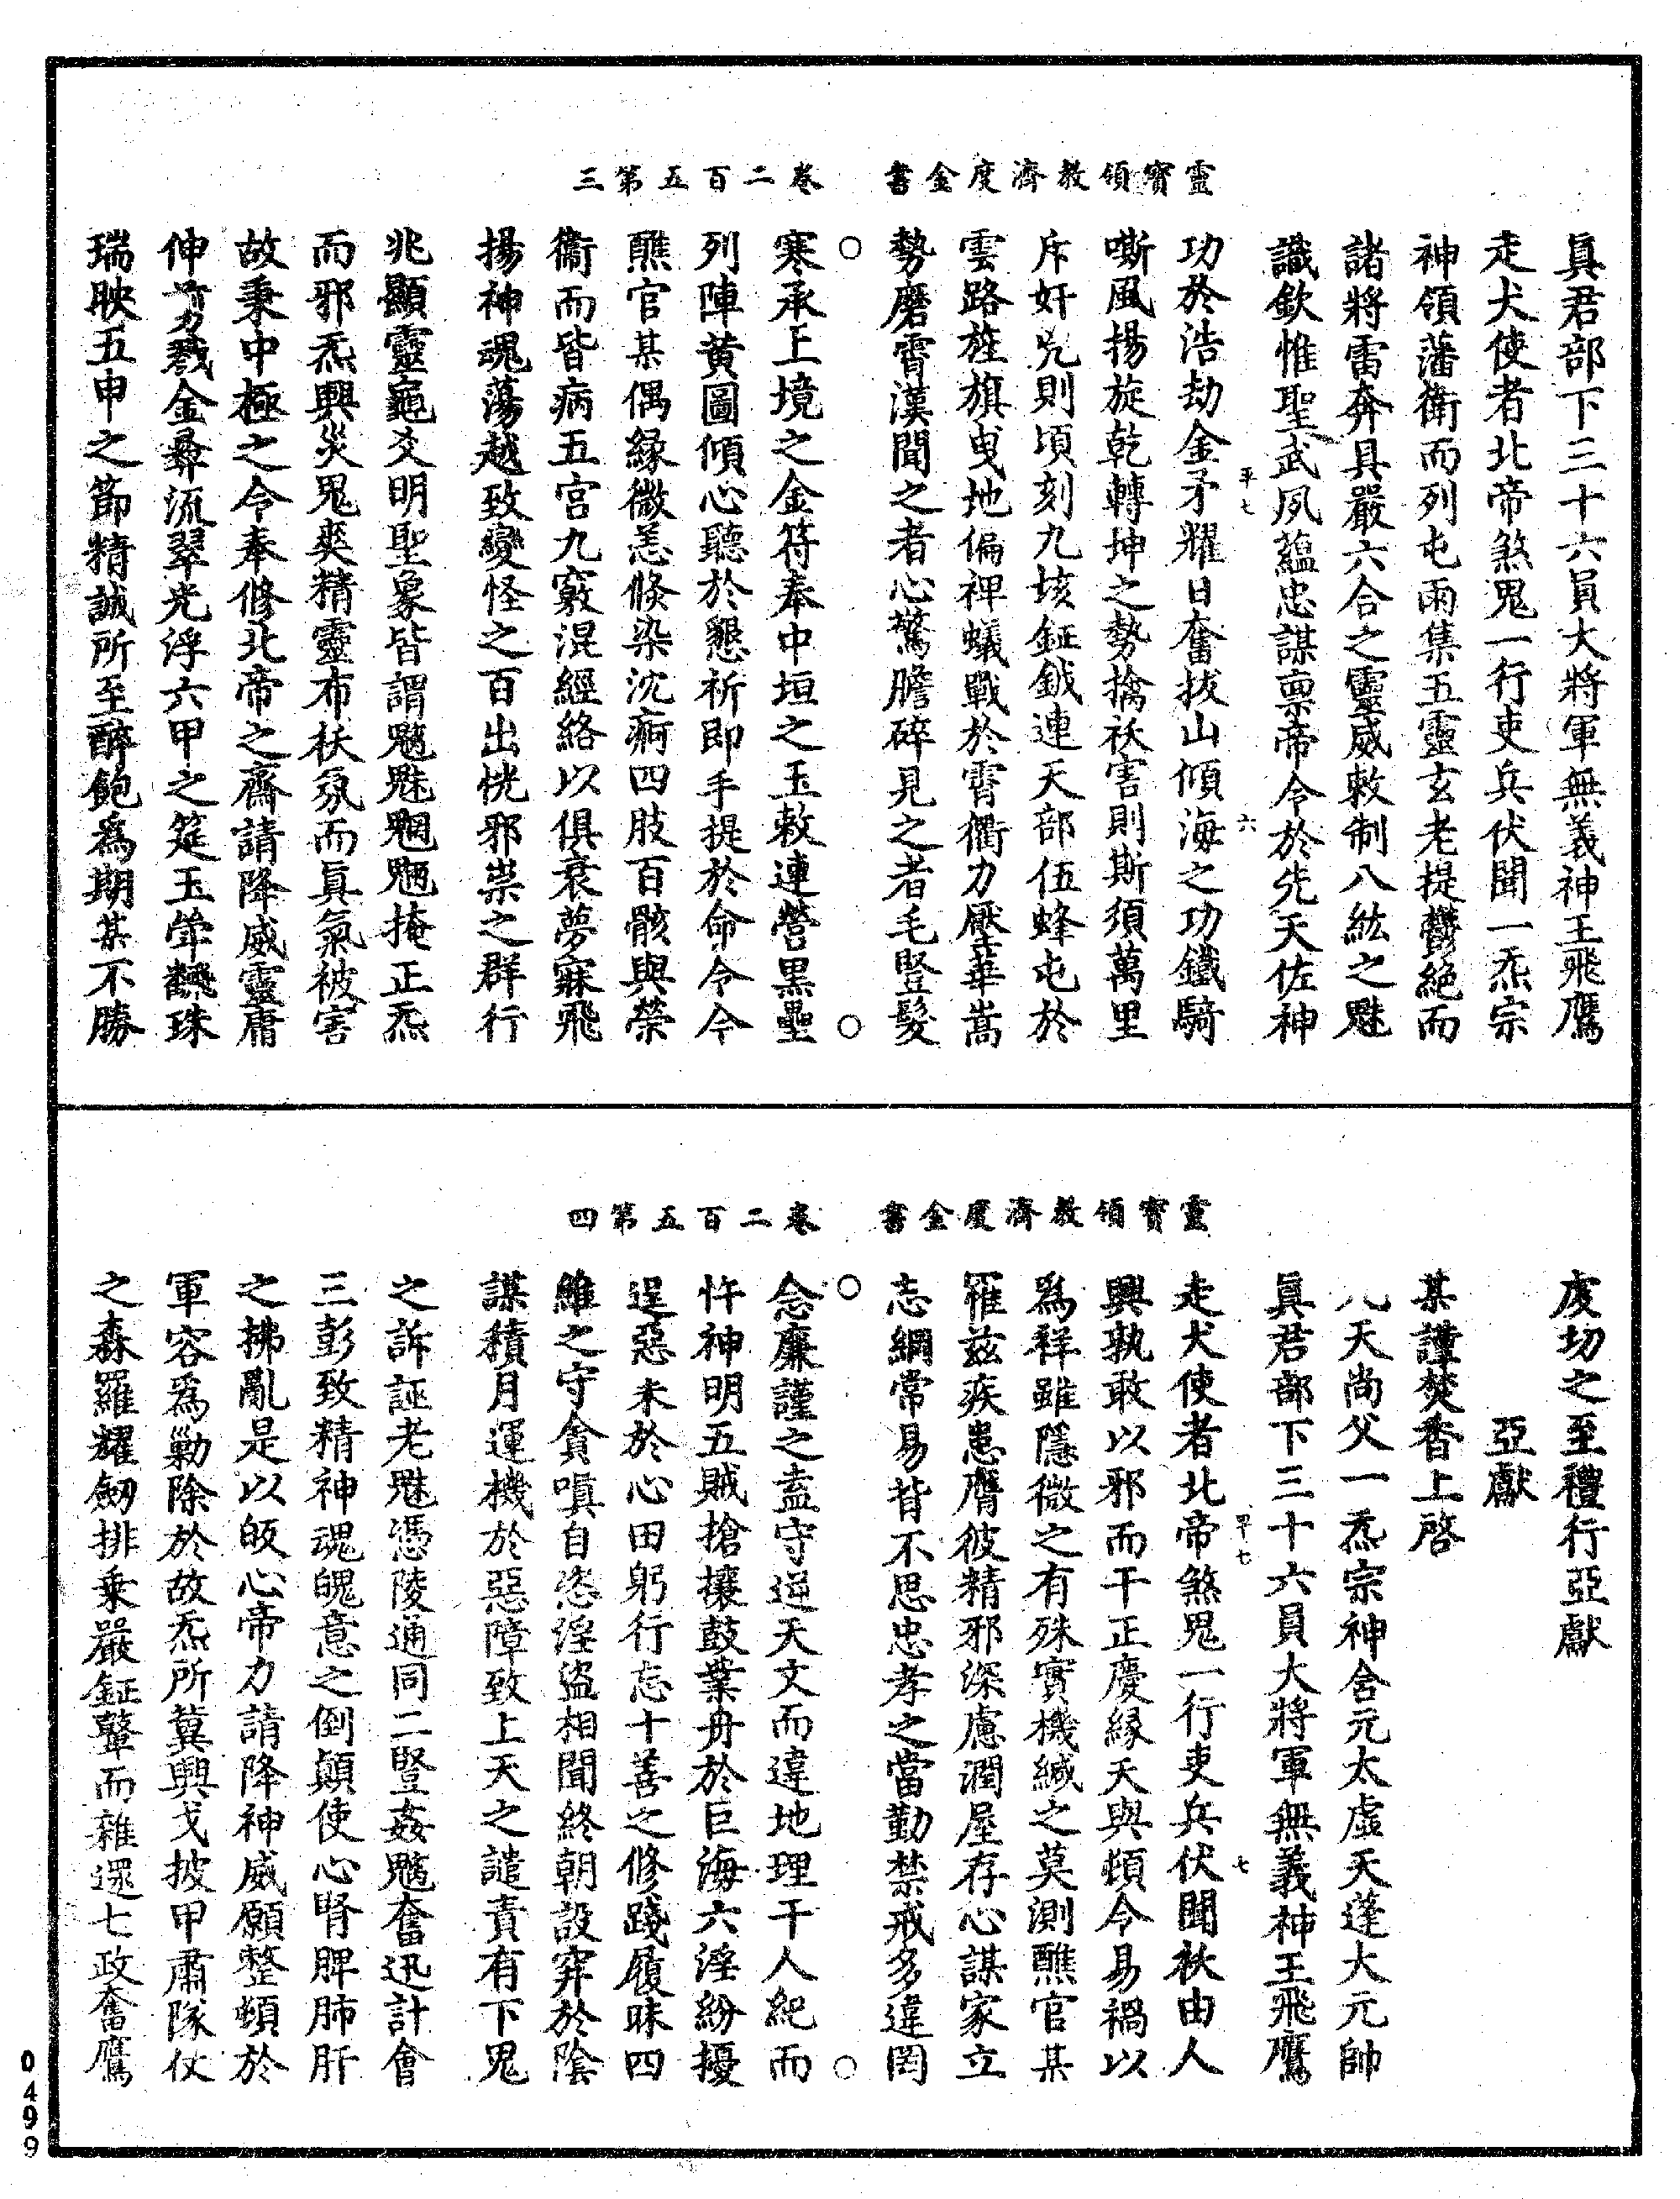 靈寶領教濟度金書　卷二百五第三
眞君部下三十六員大將軍無義神王飛鷹
走犬使者北帝煞鬼一行吏兵伏聞一炁宗
神領藩衛而列屯雨集五靈玄老提欝絕而
諸將雷奔具嚴六合之靈威敕制八紘之魁
識欽惟聖武夙蘊忠謀禀帝令於先天佐神
平七　六
功於浩劫金矛耀日奮拔山傾海之功鐵騎
嘶風揚旋乾轉坤之勢擒祅害則斯須萬里
斥奸兇則頃刻九垓鉦鉞連天部伍蜂屯於
雲路旌旗曳地偏裨蟻戰於霄衢力壓華嵩
勢磨霄漢聞之者心驚膽碎見之者毛豎髮
寒承上境之金符奉中垣之玉敕連營黑壘
列陣黄圖傾心聽於懇祈即手提於命令今
醮官某偶緣微恙倏染沈痾四肢百骸與榮
衞而皆病五宫九竅混經絡以俱衰夢寐飛
揚神魂蕩越致變怪之百出恍邪祟之群行
兆顯靈龜爻明聖象皆謂魑魅魍魎掩正炁
而邪炁興災鬼爽精靈布祅氛而眞氣被害
故秉中極之令奉修北帝之齋請降威靈庸
伸芳戮金彝流翠光浮六甲之筵玉斝飜珠
瑞映五申之節精誠所至醉飽爲期某不勝
靈寶領教濟度金書　卷二百五第四
虔切之至禮行亞獻
亞獻
某謹焚香上啓
九天尚父一炁宗神舍元太虛天蓬大元帥
眞君部下三十六員大將軍無義神王飛鷹
平七　七
走犬使者北帝煞鬼一行吏兵伏聞祅由人
興孰敢以邪而干正慶緣天與頓令易禍以
爲祥雖隱微之有殊實機緘之莫測醮官某
罹兹疾患膺彼精邪深慮潤屋存心謀家立
志綱常易背不思忠孝之當勤禁戒多違罔
念廉謹之盍守逆天文而違地理干人紀而
忤神明五賊搶攘鼓業舟於巨海六淫紛擾
逞惡耒於心田躬行忘十善之修踐履昧四
維之守貪嗔自恣淫盜相聞終朝設穽於陰
謀積月運機於惡障致上天之譴責有下鬼
之訴誣老魅憑陵通同二豎姦魑奮迅計會
三彭致精神魂魄意之倒顛使心腎脾肺肝
之拂亂是以皈心帝力請降神威願整頓於
軍容爲勦除於故炁所冀興戈披甲肅隊仗
之森羅耀劒排乗嚴鉦鼙而雜遝七政奮鷹
0499